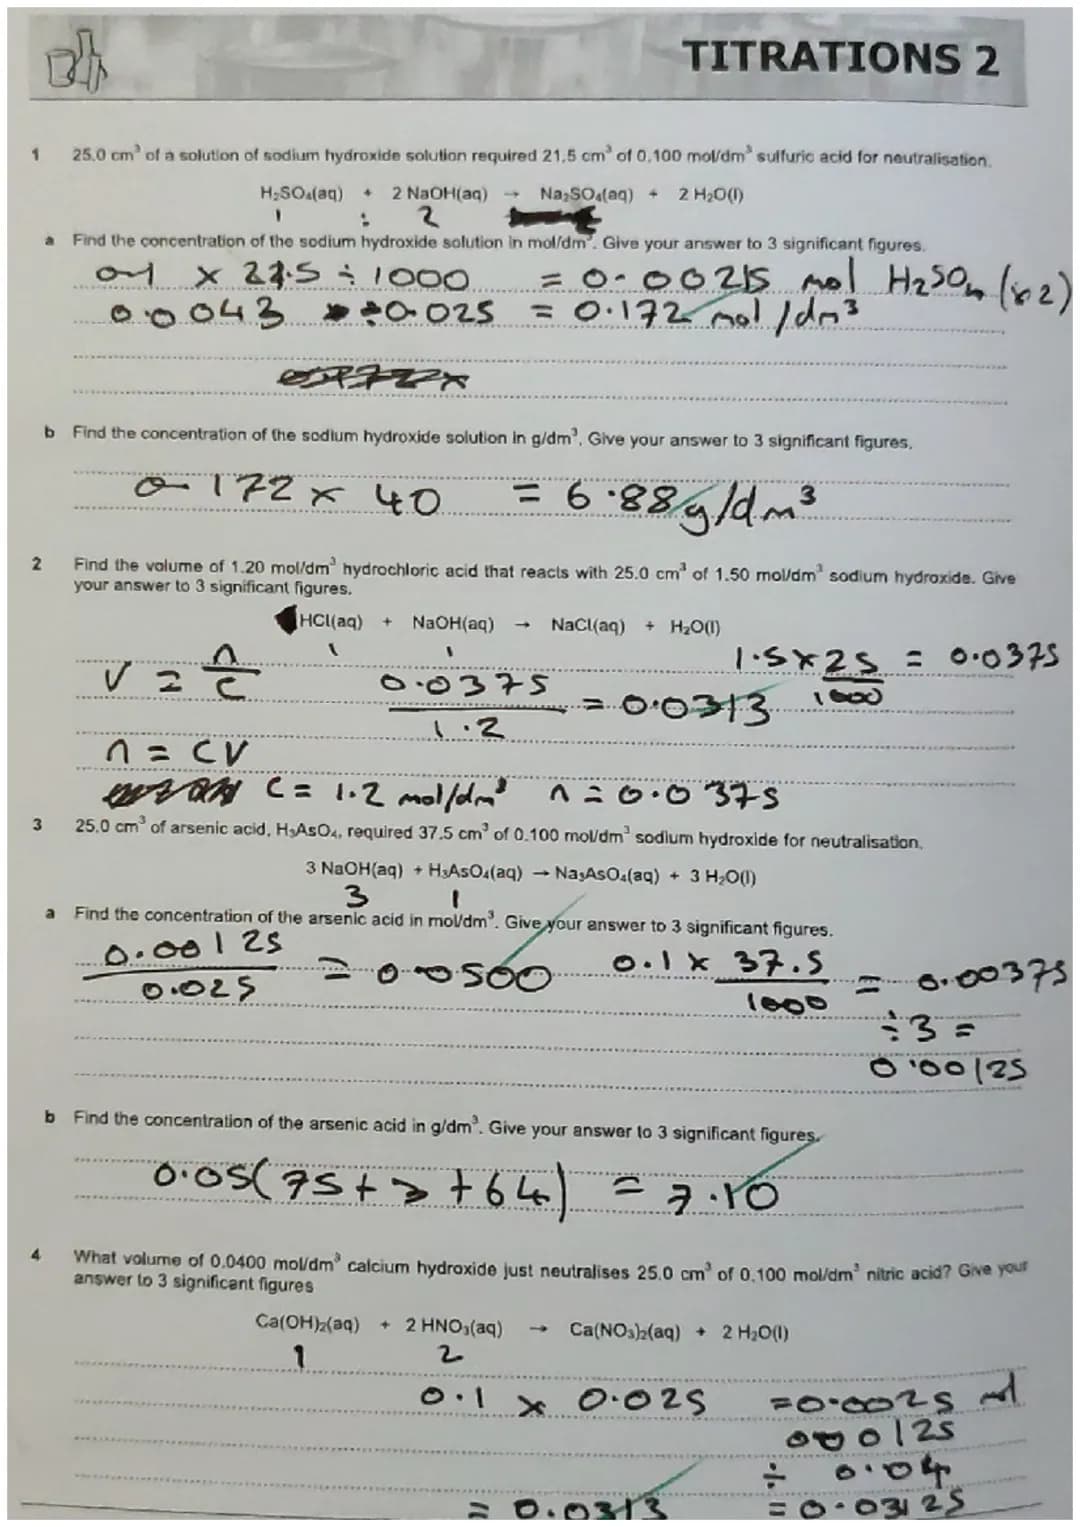 TITRATIONS 2
1 25.0 cm³ of a solution of sodium hydroxide solution required 21.5 cm³ of 0.100 mol/dm³ sulfuric acid for neutralisation.
H₂SO₄(aq) + 2 NaOH(aq) → Na₂SO₄(aq) + 2 H₂O(l)
1 : 2
a Find the concentration of the sodium hydroxide solution in mol/dm³. Give your answer to 3 significant figures.
0.1 × 21.5 ÷ 1000 = 0.00215 mol H₂SO₄ (×2)
0.0043 ÷ 0.025 = 0.172 mol/dm³
b Find the concentration of the sodium hydroxide solution in g/dm³. Give your answer to 3 significant figures.
0.172 × 40 = 6.88 g/dm³
2 Find the volume of 1.20 mol/dm³ hydrochloric acid that reacts with 25.0 cm³ of 1.50 mol/dm³ sodium hydroxide. Give
your answer to 3 significant figures.
HCl(aq) + NaOH(aq) → NaCl(aq) + H₂O(l)
1 1
1.5 × 25/1000 = 0.0375
V = n/c 0.0375/1.2 = 0.0313
n = CV
C = 1.2 mol/dm³ n = 0.0375
3 25.0 cm³ of arsenic acid, H₃AsO₄, required 37.5 cm³ of 0.100 mol/dm³ sodium hydroxide for neutralisation.
3 NaOH(aq) + H₃AsO₄(aq) → Na₃AsO₄(aq) + 3 H₂O(l)
3 1
a Find the concentration of the arsenic acid in mol/dm³. Give your answer to 3 significant figures.
0.00125/0.025 = 0.0500 0.1 × 37.5/1000 = 0.00375
÷ 3 =
0.00125
b Find the concentration of the arsenic acid in g/dm³. Give your answer to 3 significant figures.
0.05(75 + 3 + 64) = 7.10
4 What volume of 0.0400 mol/dm³ calcium hydroxide just neutralises 25.0 cm³ of 0.100 mol/dm³ nitric acid? Give your
answer to 3 significant figures
Ca(OH)₂(aq) + 2 HNO₃(aq) → Ca(NO₃)₂(aq) + 2 H₂O(l)
1 2
0.1 × 0.025 = 0.0025 mol
0.00125
÷ 0.04
= 0.0313 = 0.03125